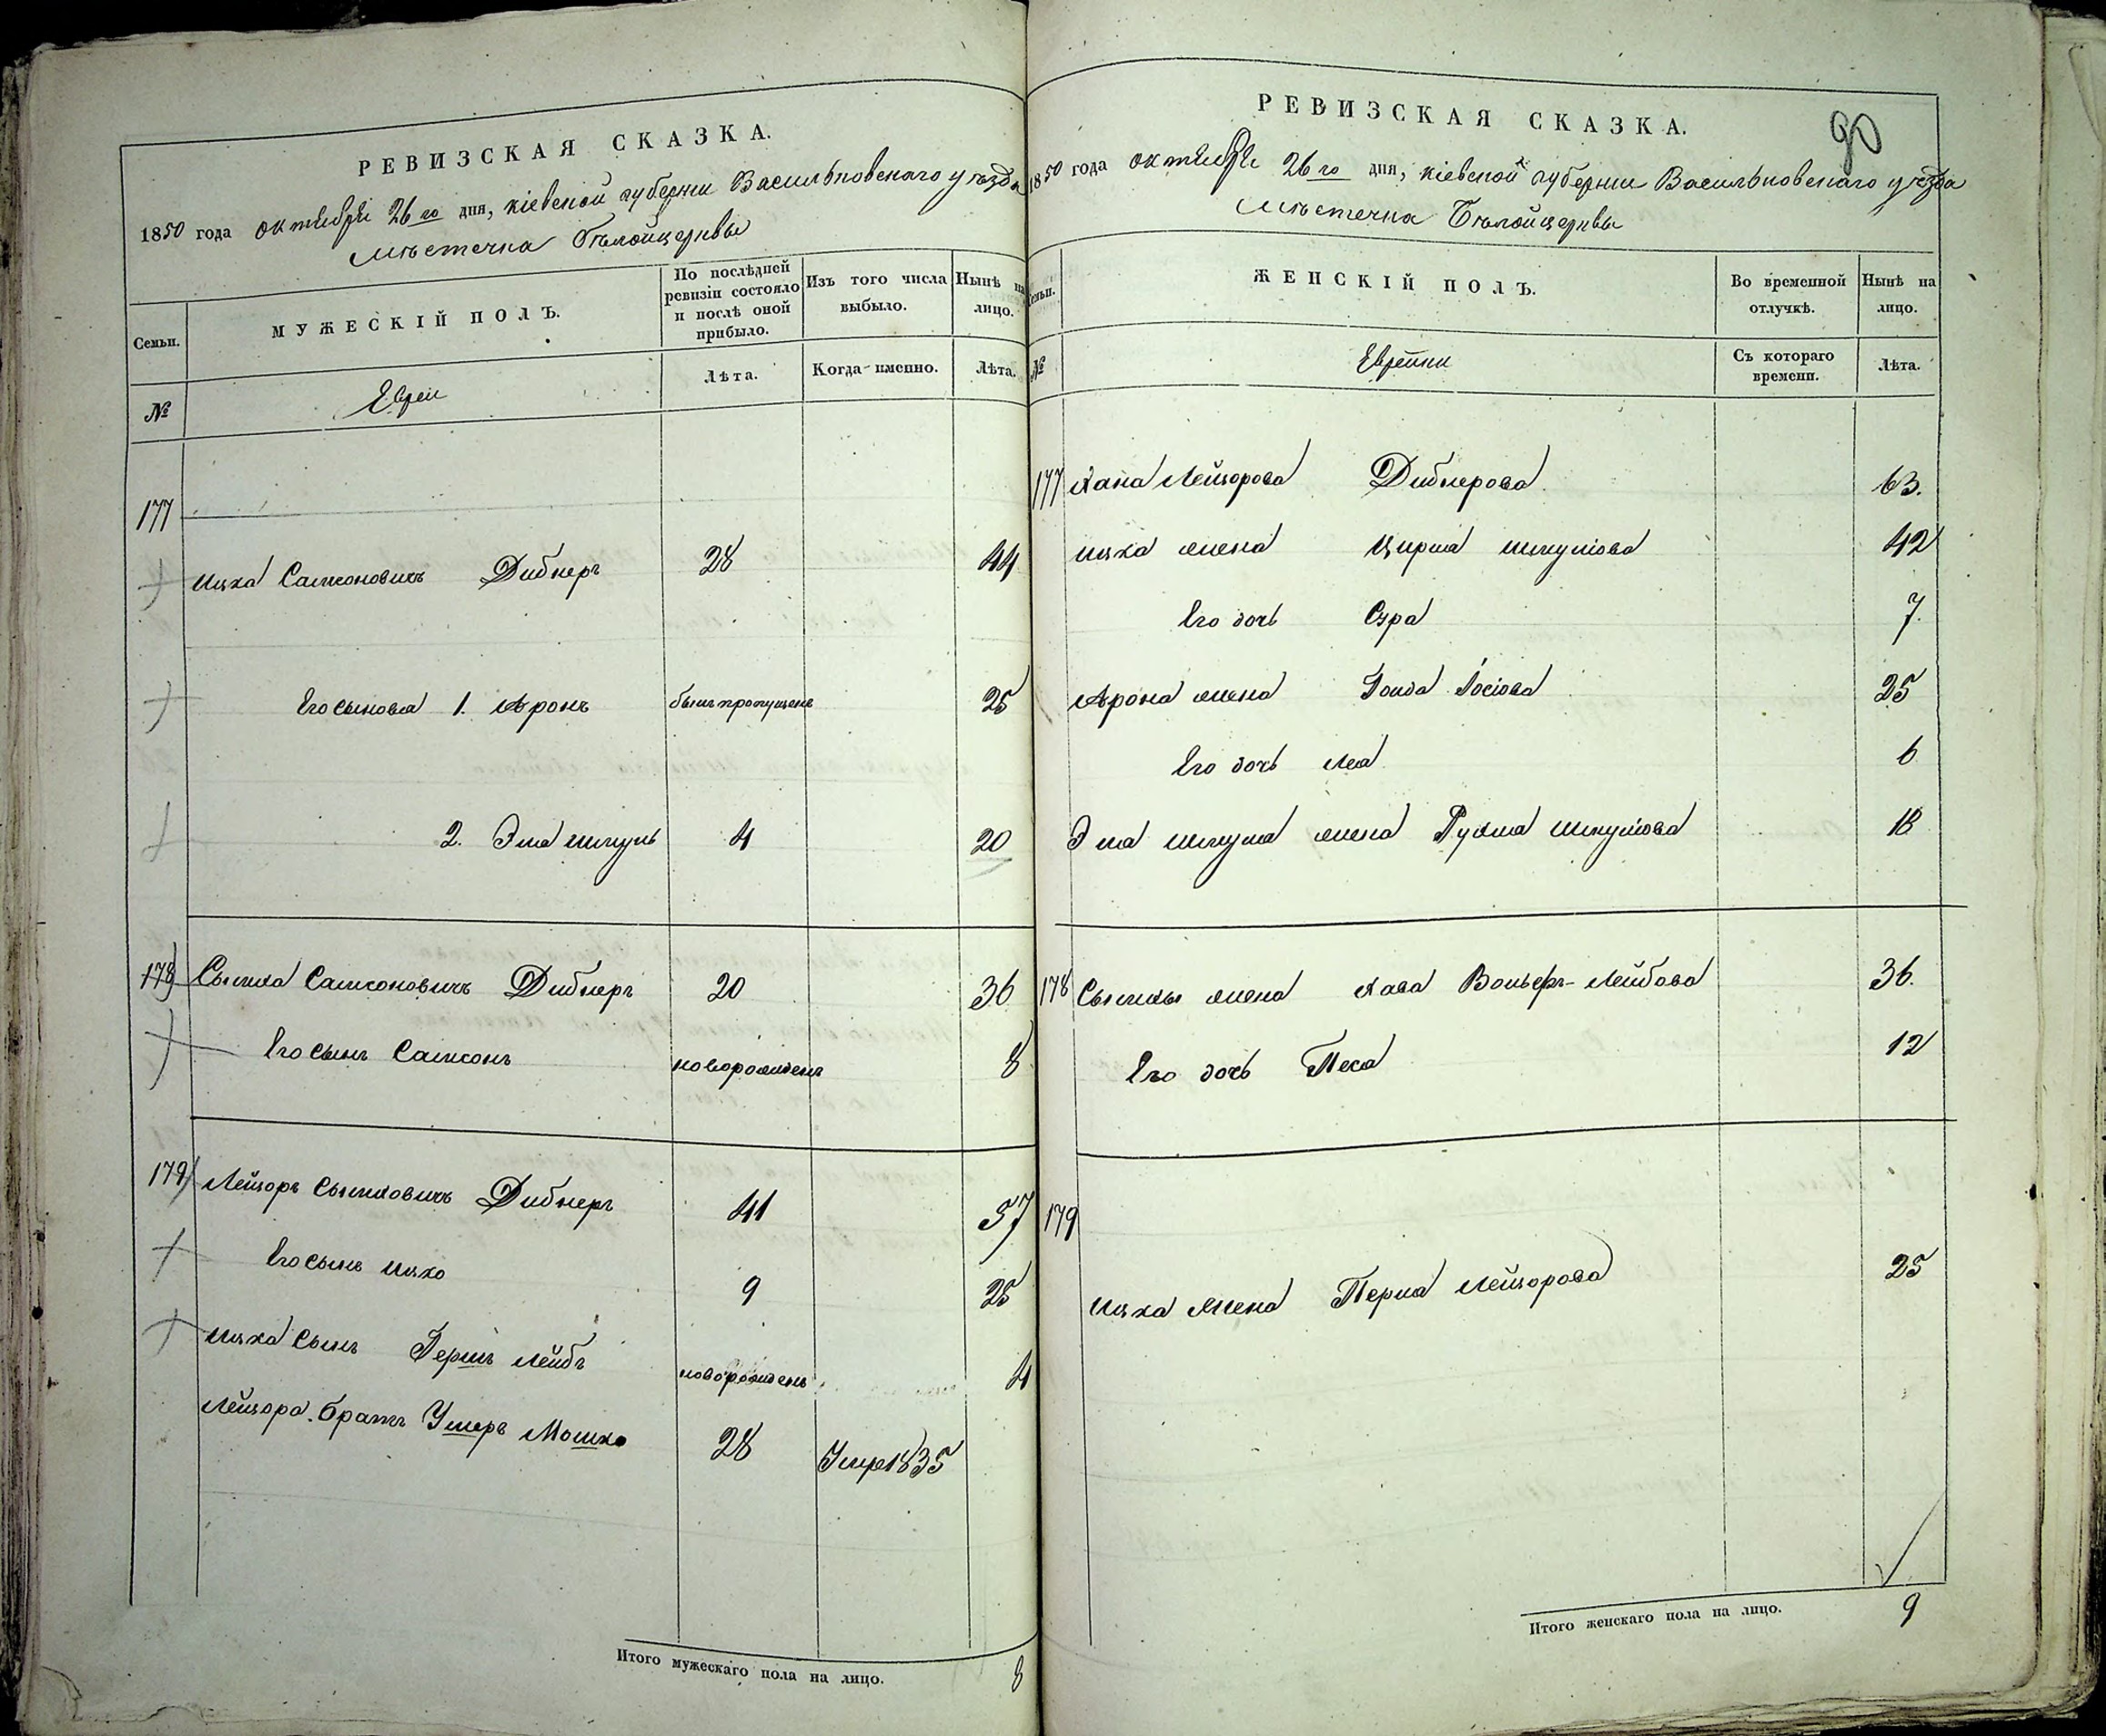 РЕВИЗСКАЯ СКАЗКА.
1850 года октября 26го дня, Кіевской губерніи Васильковскаго уѣзда
мѣстечка Бѣлойцеркви
Семьи.
МУЖЕСКІЙ ПОЛЪ.
По послѣдней ревизіи состояло и послѣ оной прибыло.
Изъ того числа выбыло.
Нынѣ на лицо.
№
Евреи
Лѣта.
Когда именно.
Лѣта.
177
Ицка Самсоновичъ Дибнеръ 28 44
Его сыновья 1. Аронъ былъ пропущенъ 25
2. Эла Шмуль 4 20
178 Сымха Самсоновичъ Дибнеръ 20 36
Его сынъ Самсонъ новорожденъ 8
179 Лейзоръ Сымховичъ Дибнеръ 41 57
Его сынъ Ицко 9 25
Ицка сынъ Гершъ Лейбъ новорожденъ 4
Лейзора братъ Ушеръ Мошко 28 Умре 1835
Итого мужескаго пола на лицо. 8
РЕВИЗСКАЯ СКАЗКА.
90
1850 года октября 26го дня, Кіевской губерніи Васильковскаго уѣзда
мѣстечка Бѣлойцеркви
Семьи.
ЖЕНСКІЙ ПОЛЪ.
Во временной отлучкѣ.
Нынѣ на лицо.
№
Еврейки
Съ котораго времени.
Лѣта.
177 Хана Лейзорова Дибнерова 63.
Ицка жена Цирля Шмулiова 42
Его дочь Сура 7.
Арона жена Голда Іосіова 25
Его дочь Лея 6
Эла Шмуля жена Рухля Шмулiова 18
178 Сымхы жена Хава Вольфъ-Лейбова 36.
Его дочь Песа 12
179
Ицка жена Перла Лейзорова 25
Итого женскаго пола на лицо. 9